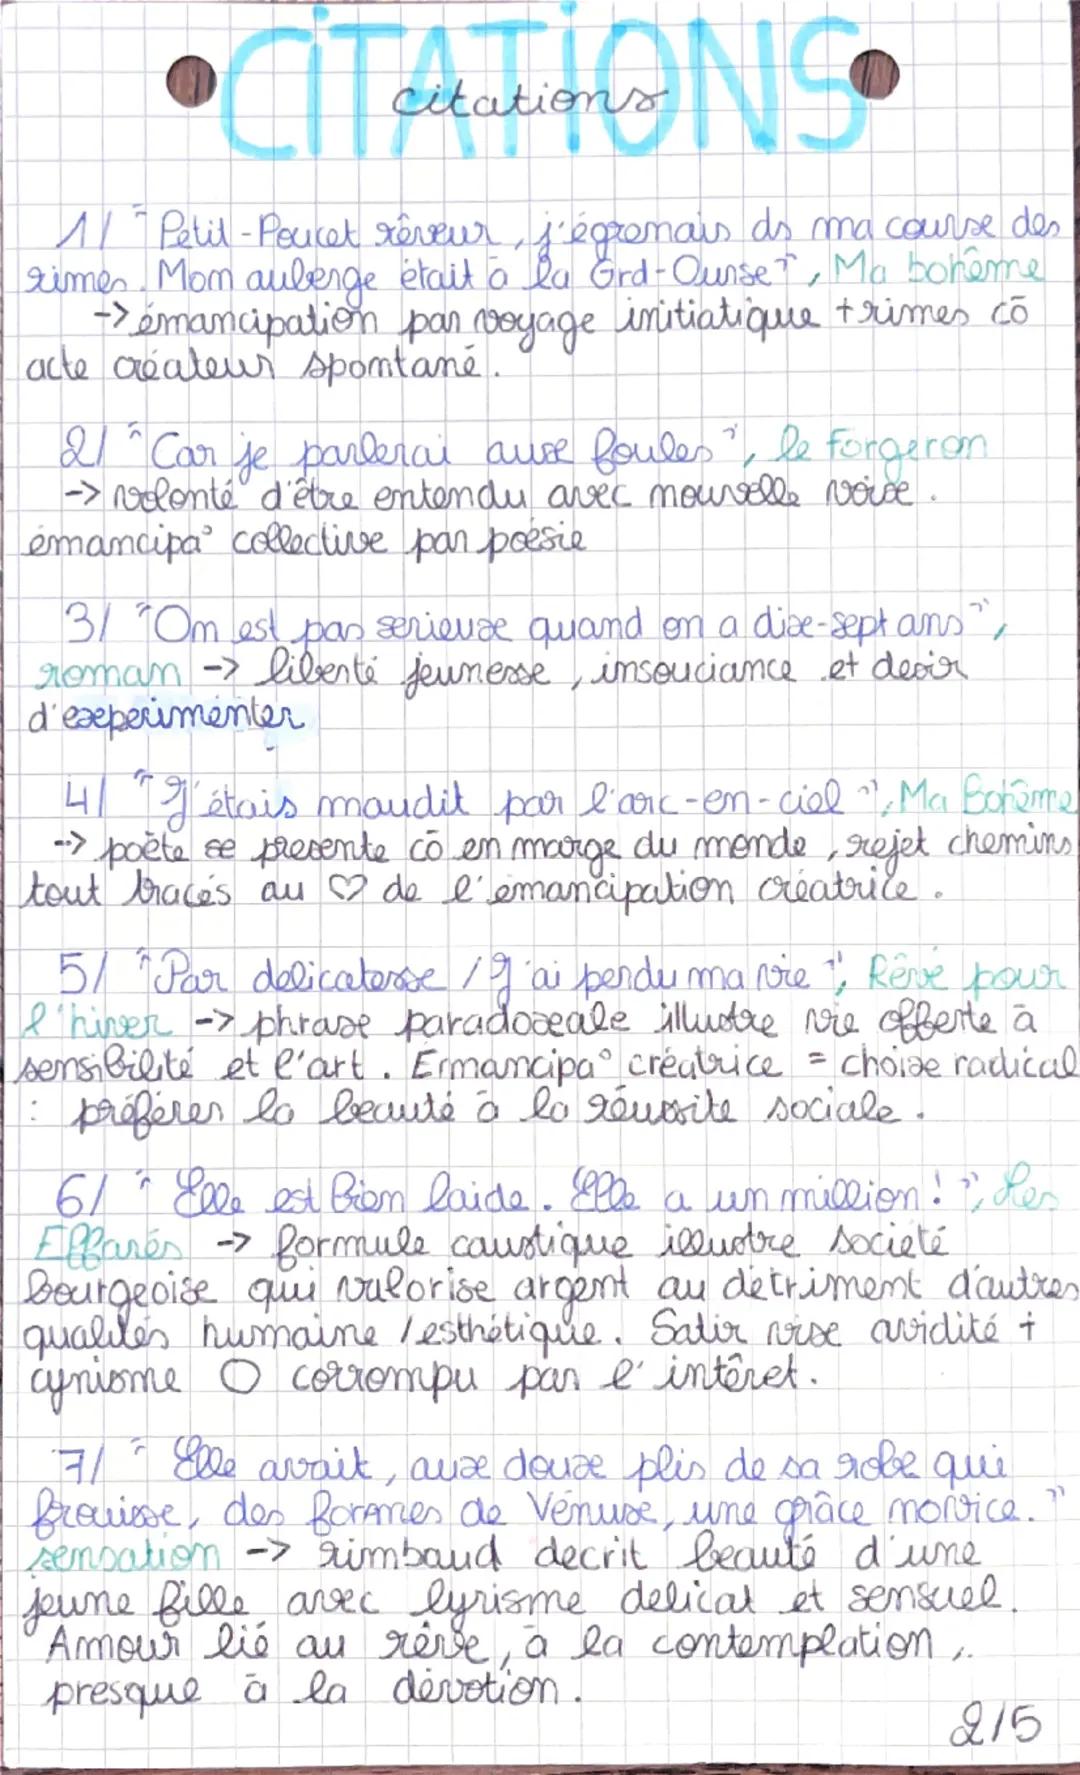 CITATIONS
citations
1/ "Petit-Poucet rêveur, j'égrenais ds ma course des
rimes. Mon auberge était à la Grd-Ourse", Ma bohème
-> émancipation par voyage initiatique + rimes cō
acte créateur spontané.
2/ "Car je parlerai aux foules", le Forgeron
-> volonté d'être entendu avec nouvelle voix.
émancipa° collective par poésie
3/ "On est pas serieux quand on a dix-sept ans",
roman -> liberté jeunesse, insouciance et desir
d'expérimenter
4/ "J'étais maudit par l'arc-en-ciel", Ma Bohême
--> poète se presente cō en marge du monde, rejet chemins
tout tracés au ♡ de l'émancipation créatrice.
5/ "Par delicatesse / J'ai perdu ma vie", Rêvé pour
l'hiver -> phrase paradoxale illustre vie offerte à
sensibilité et l'art. Émancipa° créatrice = choix radical
: préférer la beauté à la réussite sociale.
6/ "Elle est bien laide. Elle a un million!", Les
Effarés -> formule caustique illustre société
bourgeoise qui valorise argent au détriment d'autres
qualités humaine / esthétique. Satir vise avidité +
cynisme O corrompu par l'intêret.
7/ "Elle avait, aux douze plis de sa robe qui
frouisse, des formes de Vénus, une grâce novice."
sensation -> rimbaud decrit beauté d'une
jeune fille avec lyrisme delicat et sensuel.
Amour lié au rêve, à la contemplation,
presque à la dévotion.
2/5